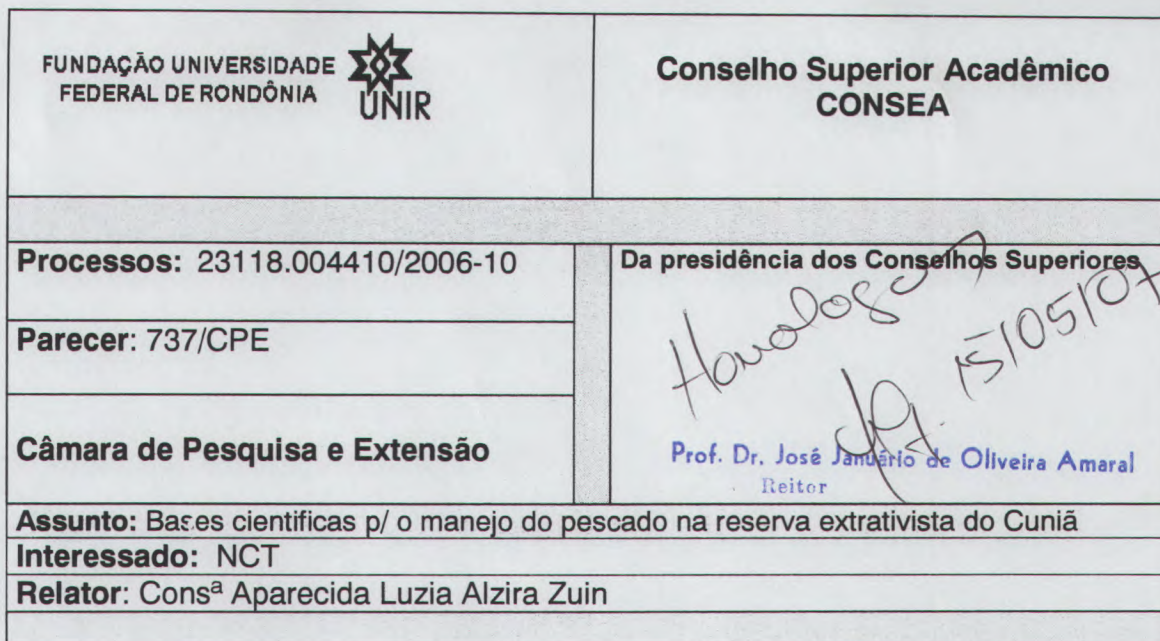 FUNDAÇÃO UNIVERSIDADE
FEDERAL DE RONDÔNIA
UNIR
Conselho Superior Acadêmico
CONSEA
Processos: 23118.004410/2006-10
Parecer: 737/CPE
Câmara de Pesquisa e Extensão
Da presidência dos Conselhos Superiores
15/05/07
Prof. Dr. José Januário de Oliveira Amaral
Reitor
Assunto: Bases cientificas p/ o manejo do pescado na reserva extrativista do Cuniã
Interessado: NCT
Relator: Consª Aparecida Luzia Alzira Zuin